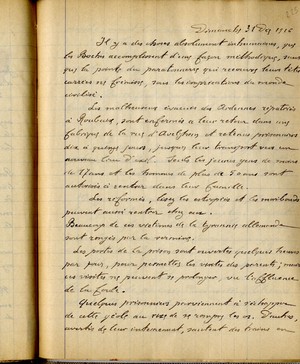 Dimanche 31 Dec 1916
Il y a des choses absolument inhumaines, que
les Boches accomplissent d'une façon méthodique, mais
que la pointe du paratonnerre qui recouvre leur tête
carrée en
civilisé.
Les malheureux évacués des Ardennes répartis
à Roubaix, sont enfermés à leur retour dans une
fabrique de la rue d'Avelghem et retenus prisonniers
des à quinze jours, jusqu'à leur transport vers un
nouveau d'exil. Seuls les jeunes gens de moins
de 17 ans et les hommes de plus de 5 ans sont
autorisés à rentrer dans leur famille.
Les réformés, les estropiés et les moribonds
peuvent aussi rentrer chez eux.
Beaucoup de ces victimes de la tyrannie allemande
sont rongés par la vermine.
Les portes de la prison sont ouvertes quelques heures
par jour, pour permettre les visites des parents; mais
ces visites ne peuvent se prolonger, vu l'affluence
de la foule.
Quelques prisonniers parviennent à s'échapper
de cette geôle au risque de se rompre les os. D'autres,
avertis de leur internement, sautent des trains en